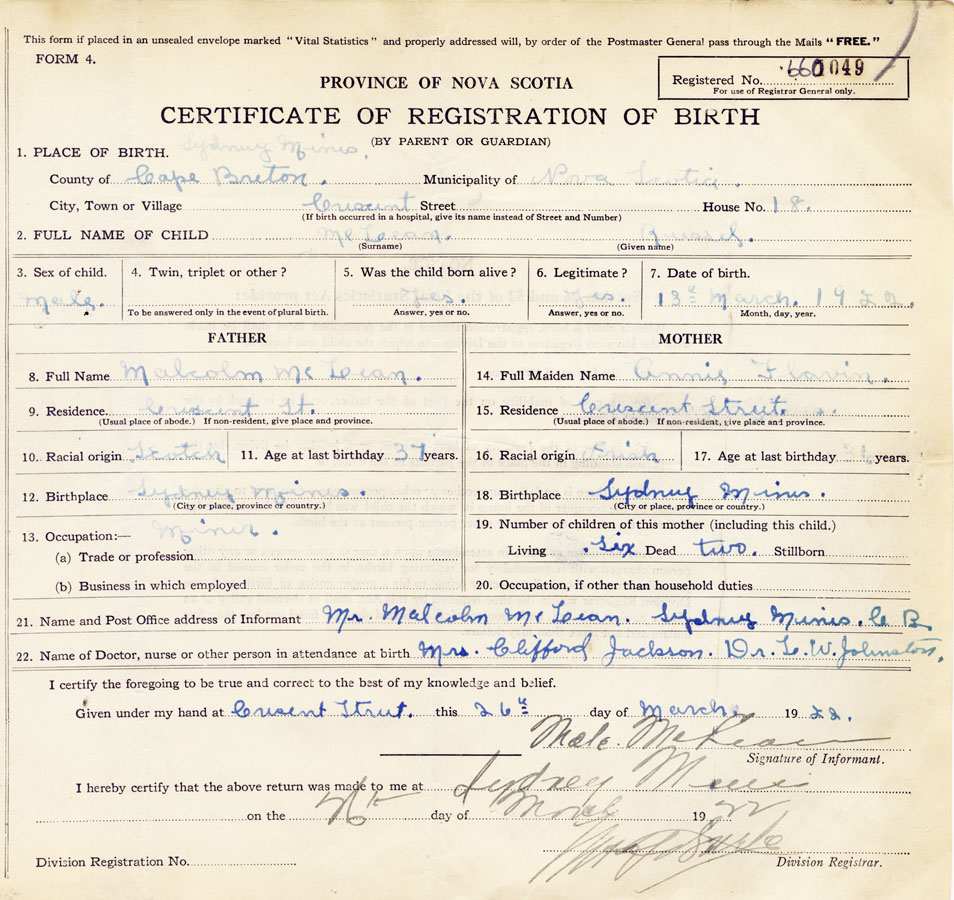 This form if placed in an unsealed envelope marked "Vital Statistics" and properly addressed will, by order of the Postmaster General pass through the Mails "FREE."
FORM 4.
Registered No. 049
For use of Registrar General only.
PROVINCE OF NOVA SCOTIA
CERTIFICATE OF REGISTRATION OF BIRTH
(BY PARENT OR GUARDIAN)
1. PLACE OF BIRTH. Sydney Mines.
County of Cape Breton. Municipality of Nova Scotia.
City, Town or Village Crescent Street House No. 18.
(If birth occurred in a hospital, give its name instead of Street and Number)
2. FULL NAME OF CHILD McLean. Russel.
(Surname) (Given name)
3. Sex of child. 4. Twin, triplet or other? 5. Was the child born alive? 6. Legitimate? 7. Date of birth.
Male. Yes. Yes. 13th March. 1922.
To be answered only in the event of plural birth. Answer, yes or no. Answer, yes or no. Month, day, year.
FATHER MOTHER
8. Full Name Malcolm McLean. 14. Full Maiden Name Annie Flavin.
9. Residence. Crescent St. 15. Residence Crescent Street.
(Usual place of abode.) If non-resident, give place and province. (Usual place of abode.) If non-resident, give place and province.
10. Racial origin Scotch 11. Age at last birthday 37 years. 16. Racial origin Irish 17. Age at last birthday years.
12. Birthplace Sydney Mines. 18. Birthplace Sydney Mines.
(City or place, province or country.) (City or place, province or country.)
13. Occupation:— Miner. 19. Number of children of this mother (including this child.)
(a) Trade or profession Living Six Dead two. Stillborn
(b) Business in which employed 20. Occupation, if other than household duties
21. Name and Post Office address of Informant Mr. Malcolm McLean. Sydney Mines. C B.
22. Name of Doctor, nurse or other person in attendance at birth Mrs. Clifford Jackson. Dr. L. W. Johnston.
I certify the foregoing to be true and correct to the best of my knowledge and belief.
Given under my hand at Cresent Street. this 26th day of March. 1922.
Malc. McLean
Signature of Informant.
I hereby certify that the above return was made to me at Sydney Mines
on the day of March 1922
Division Registration No. Division Registrar.